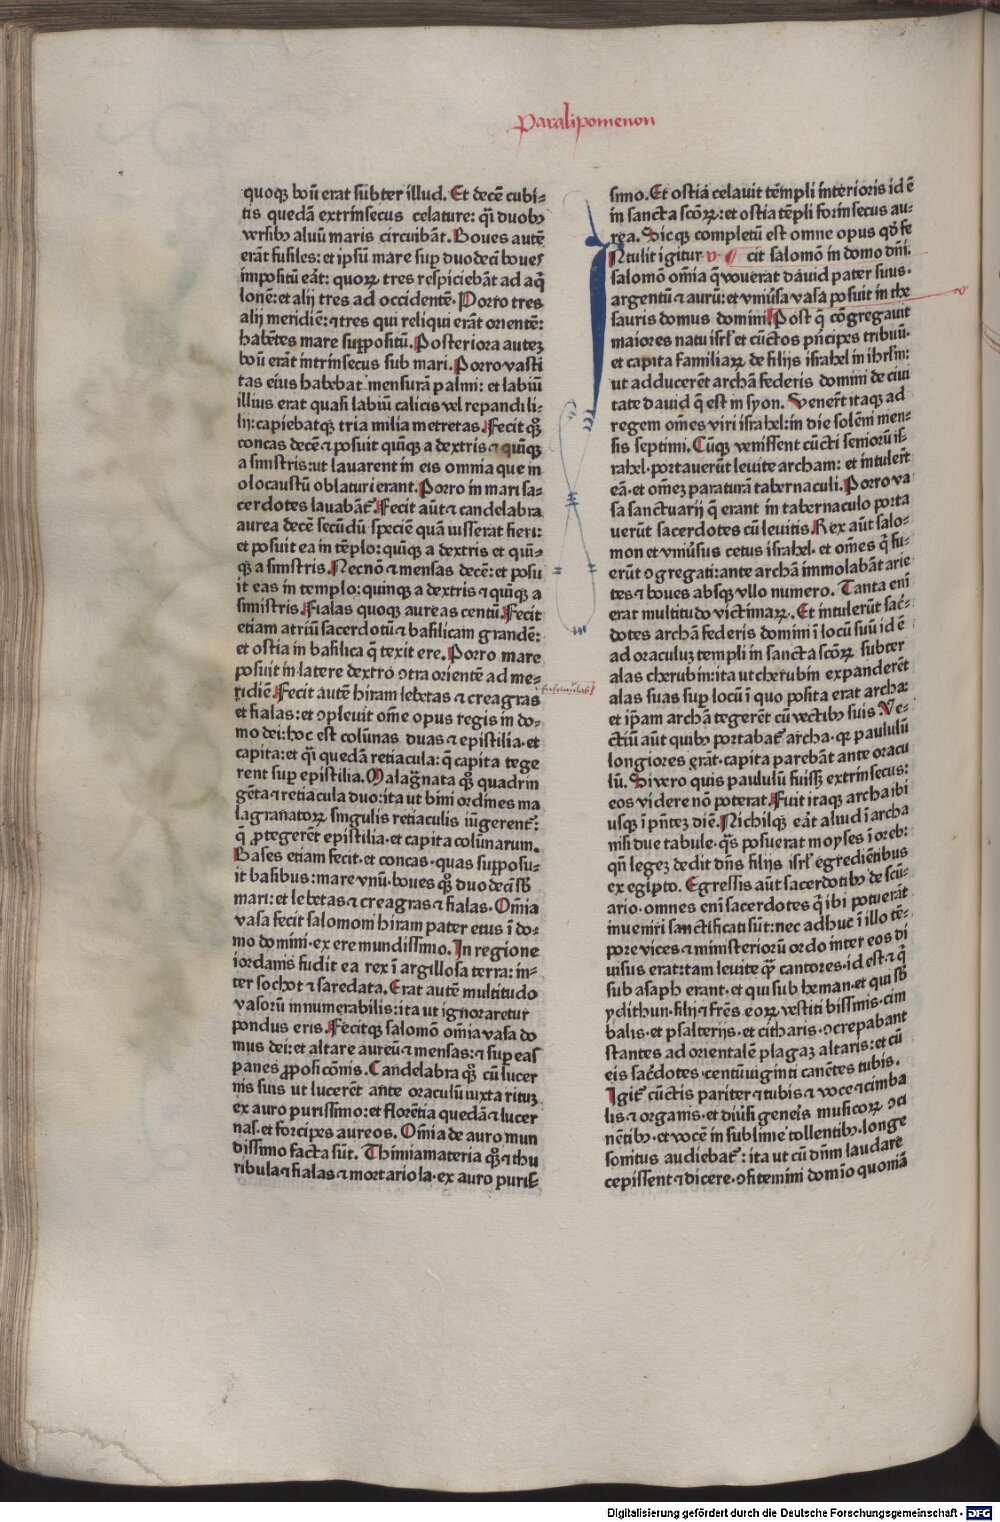 Paralipomenon
quoqꝫ boū erat subter illud. Et decē cubi⸗
tis quedā extrinsecus celature: qͥ duobꝰ
versibꝰ aluū maris circuibāt. Boues autē
erāt fusiles: et ipsū mare sup duodecī boues
impositū eāt: quoꝝ tres respiciebāt ad aqͥ
lonē: et alij tres ad occidentē. Porro tres
alij meridiē: ⁊ tres qui reliqui erāt orientē:
habētes mare suppositū. Posteriora autez
boū erāt intrinsecus sub mari. Porro vasti
tas eius habebat mensurā palmi: et labiū
illius erat quasi labiū calicis vel repandi li⸗
lij: capiebatqꝫ tria milia metretas. Fecit qꝫ
concas decē ⁊ posuit quīqꝫ a dextris ⁊ quīqꝫ
a sinistris: ut lauarent in eis omnia que in
olocaustū oblaturi erant. Porro in mari sa⸗
cerdotes lauabāt᷑. Fecit aūt ⁊ candelabra
aurea decē secūdū speciē quā iusserat fieri:
et posuit ea in tēplo: quīqꝫ a dextris et quī⸗
qꝫ a sinistris. Necnō ⁊ mensas decē: et posu
it eas in templo: quinqꝫ a dextris ⁊ quīqꝫ a
sinistris. Fialas quoqꝫ aureas centū. Fecit
etiam atriū sacerdotū ⁊ basilicam grandē:
et ostia in basilica q̄ texit ere. Porro mare
posuit in latere dextro ↄtra orientē ad me⸗
ridiē. Fecit autē hiram lebetas ⁊ creagras
et fialas: et ↄpleuit om̄e opus regis in do⸗
mo dei: hoc est colūnas duas ⁊ epistilia. et
capita: et qͥ quedā retiacula: q̄ capita tege
rent sup epistilia. Malagn̄ata qꝫ quadrin
gēta ⁊ retiacula duo: ita ut bini ordines ma
lagranatoꝝ singulis retiaculis iūgerent᷑:
q̄ ꝓtegerēt epistilia. et capita colūnarum.
Bases etiam fecit. et concas. quas supposu⸗
it basibus: mare vnū. boues qꝫ duodecī sb̄
mari: et lebetas ⁊ creagras ⁊ fialas. Om̄ia
vasa fecit salomoni hiram pater eius ī do⸗
mo domini. ex ere mundissimo. In regione
iordanis fudit ea rex ī argillosa terra: in⸗
ter sochot ⁊ saredata. Erat autē multitudo
vasorū innumerabilis: ita ut ignoraretur
pondus eris. Fecitqꝫ salomō om̄ia vasa do
mus dei: et altare aureū ⁊ mensas: ⁊ sup eas
panes ꝓposicōnis. Candelabra qꝫ cū lucer
nis suis ut lucerēt ante oraculū iuxta rituꝫ
ex auro purissimo: et florētia quedā ⁊ lucer
nas. et forcipes aureos. Om̄ia de auro mun
dissimo facta sūt. Thimiamateria qꝫ ⁊ thu
ribula ⁊ fialas ⁊ mortariola. ex auro puris⸗
simo. Et ostia celauit templi interioris id ē
in sancta scōꝝ: et ostia tēpli forinsecus au⸗
rea. Sicqꝫ completū est omne opus qd̄ fe
Ntulit igitur v ¶ cit salomō in domo dn̄i.
salomō om̄ia q̄ vouerat dauid pater suus.
argentū ⁊ aurū: et vniūsa vasa posuit in the
sauris domus domini. Post q̄ cōgregauit v
maiores natu isrl̄ et cūctos pn̄cipes tribuū.
et capita familiaꝝ de filijs israhel in ihrlm̄:
ut adducerēt archā federis domini de ciui
tate dauid q̄ est in syon. Venerūt itaqꝫ ad
regem om̄es viri israhel: in die solēni men⸗
sis septimi. Cūqꝫ venissent cūcti seniorū is⸗
rahel. portauerūt leuite archam: et intulerūt
eā. et om̄eꝫ paraturā tabernaculi. Porro va
sa sanctuarij q̄ erant in tabernaculo porta
uerūt sacerdotes cū leuitis. Rex aūt salo⸗
mon et vniūsus cetus israhel. et om̄es q̄ fu⸗
erūt ↄgregati: ante archā immolabāt arie
tes ⁊ boues absqꝫ vllo numero. Tanta enī
erat multitudo victimaꝝ. Et intulerūt sac̄⸗
dotes archā federis domini ī locū suū id ē
ad oraculuꝫ templi in sancta scōꝝ subter
alas cherubin: ita ut cherubin expanderēt
v fascinulas alas suas sup locū ī quo posita erat archa:
et ip̄am archā tegerēt cū vectibꝰ suis. Ve⸗
ctiū aūt quibꝰ portabat᷑ archa. qꝛ paululū
longiores erāt. capita parebāt ante oracu
lū. Si vero quis paululū fuissꝫ extrinsecus:
eos videre nō poterat. Fuit itaqꝫ archa ibi
usqꝫ ī pn̄teꝫ diē. Nichilqꝫ eāt aliud ī archa
nisi due tabule. qͣs posuerat moyses ī oreb:
qn̄ legeꝫ dedit dn̄s filijs isrl̄ egrediētibus
ex egipto. Egressis aūt sacerdotibꝰ de scū⸗
ario. omnes enī sacerdotes qͥ ibi potuerāt
inueniri sanctificati sūt: nec adhuc ī illo tē⸗
pore vices ⁊ ministeriorū ordo inter eos di
uisus erat: tam leuite qͣꝫ cantores. id est ⁊ qͥ
sub asaph erant. et qui sub heman. et qui sb̄
ydithun. filij ⁊ frēs eoꝝ vestiti bissinis. cim
balis. et psalterijs. et citharis. ↄcrepabant
stantes ad orientalē plagaꝫ altaris: et cū
eis sac̄dotes centū viginti canētes tubis.
Igit᷑ cūctis pariter ⁊ tubis ⁊ voce ⁊ cimba
lis ⁊ organis. et diūsi gene͛is musicoꝝ ↄci
nētibꝰ. et vocē in sublime tollentibꝰ. longe
sonitus audiebat᷑: ita ut cū dn̄m laudare
cepissent ⁊ dicere. ↄfitemini domīo quoniā
Digitalisierung gefördert durch die Deutsche Forschungsgemeinschaft - DFG